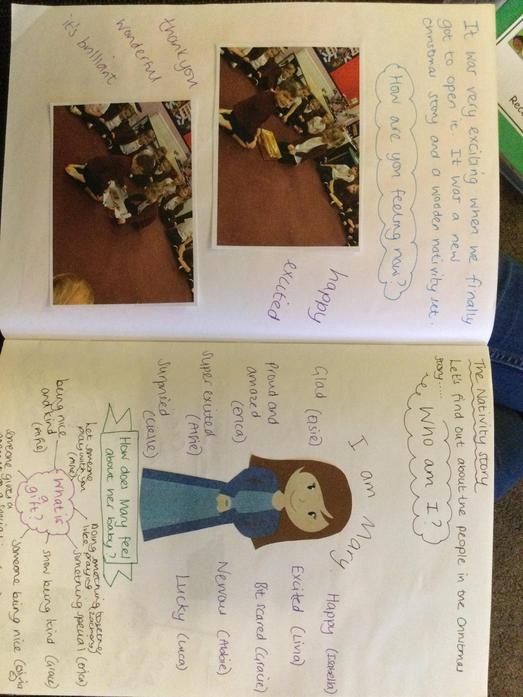 It was very exciting when we finally
got to open it. It was a new
christmas story and a wooden nativity set.
How are you feeling now?
happy
excited
thankyou
wonderful
it's brilliant
The Nativity story
Let's find out about the people in the Christmas
story....
Who am I?
I am Mary.
Glad (Elsie)
Proud and
amazed
(Erica)
Super excited
(Alfie)
Surprised
Happy (Isabella)
Excited (Livia)
Bit scared (Gracie)
Nervous (Abbie)
Lucky (Luca)
How does Mary feel
about her baby?
What is
a
gift?
Let someone
play with you
being nice
and kind
(Alfie)
Doing something together
like playing
something special (Erica)
show being kind (Grace)
Someone being nice
someone gives a